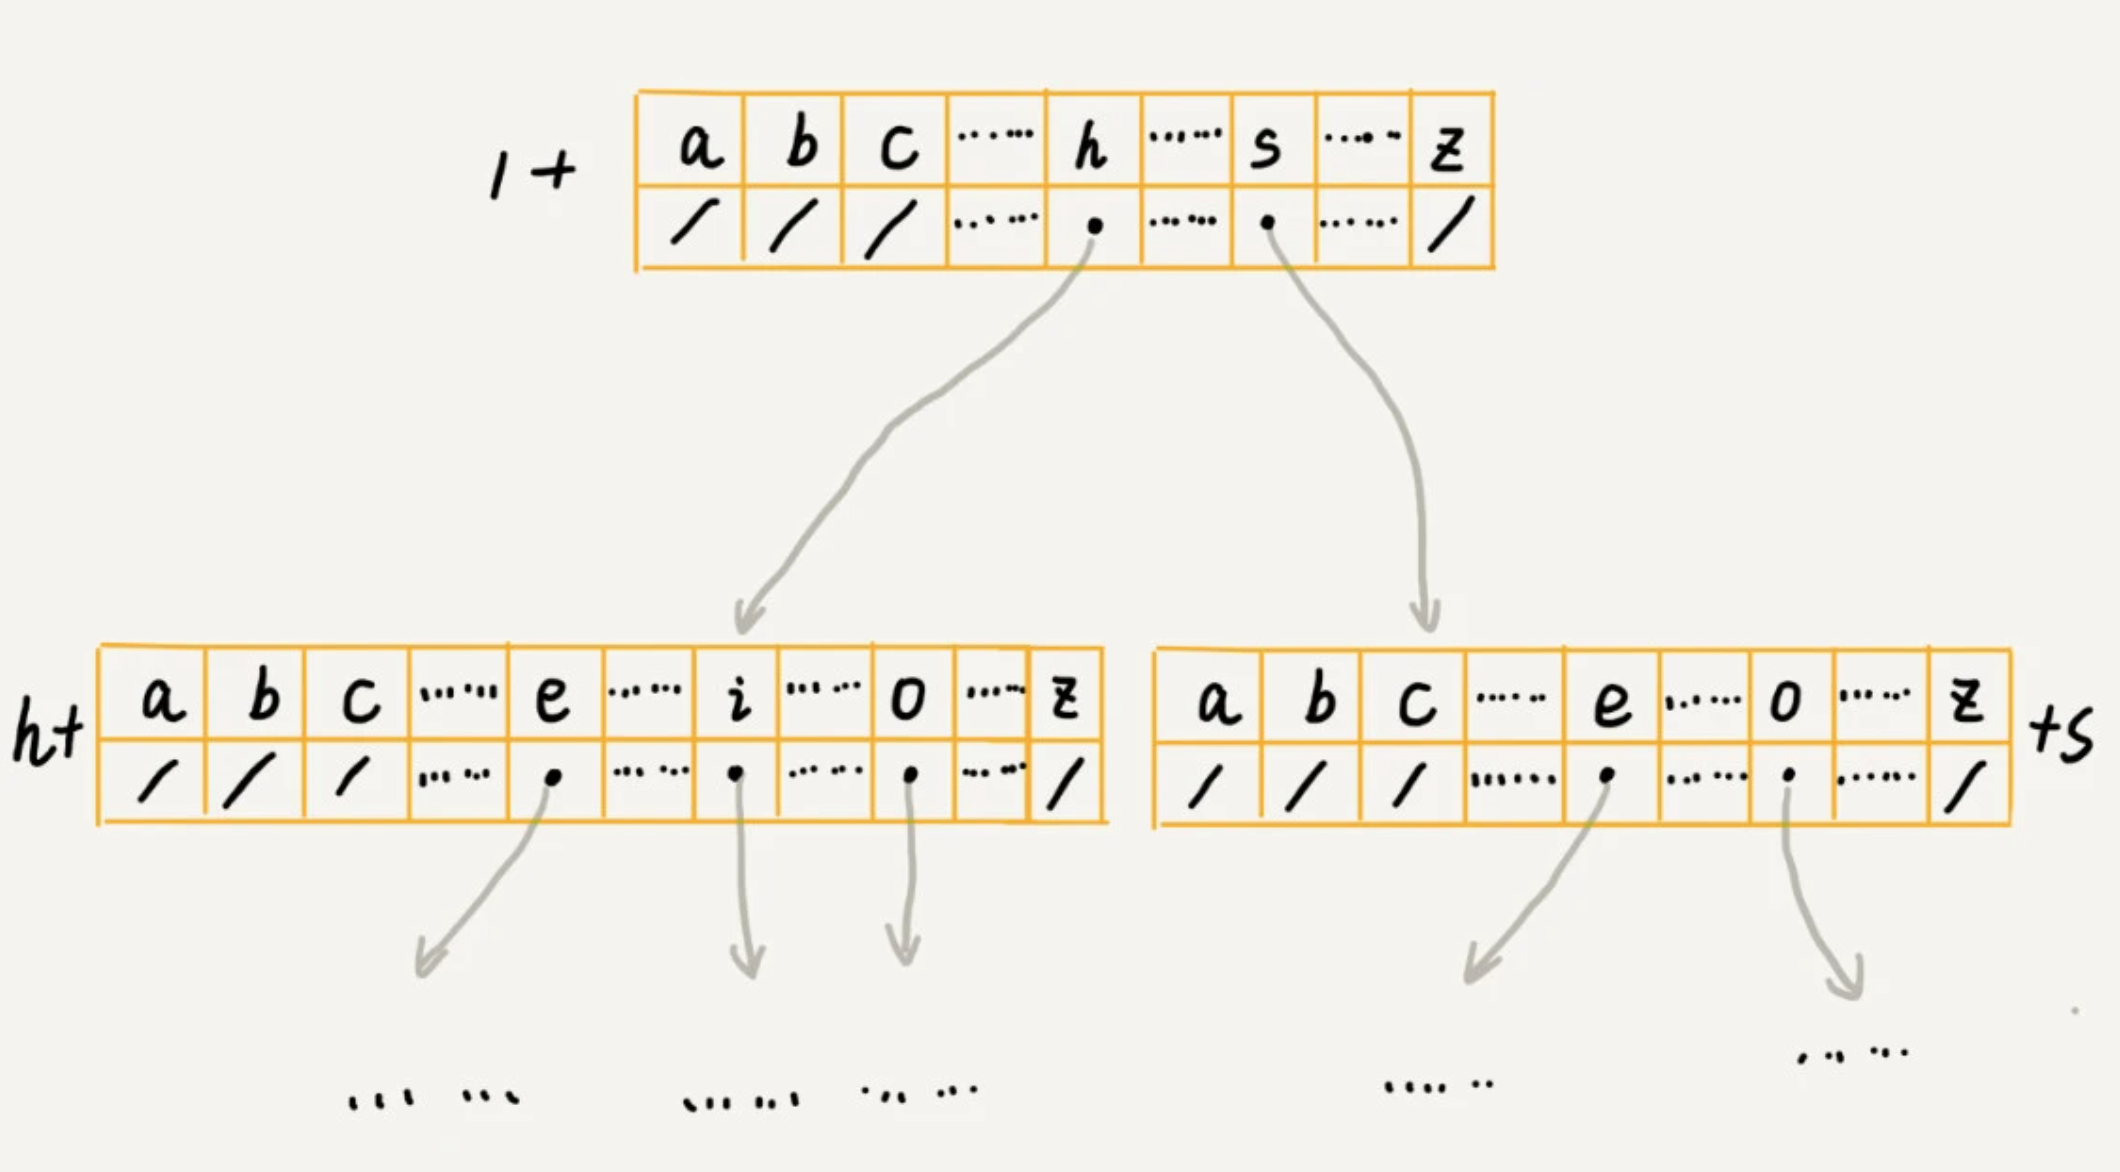 /+ a b c ...... h ...... s ...... z
/ / / ...... • ...... • ...... /
h+ a b c ...... e ...... i ...... o ...... z
/ / / ...... • ...... • ...... • ...... /
a b c ...... e ...... o ...... z +s
/ / / ...... • ...... • ...... /
...... ...... ...... ...... ......